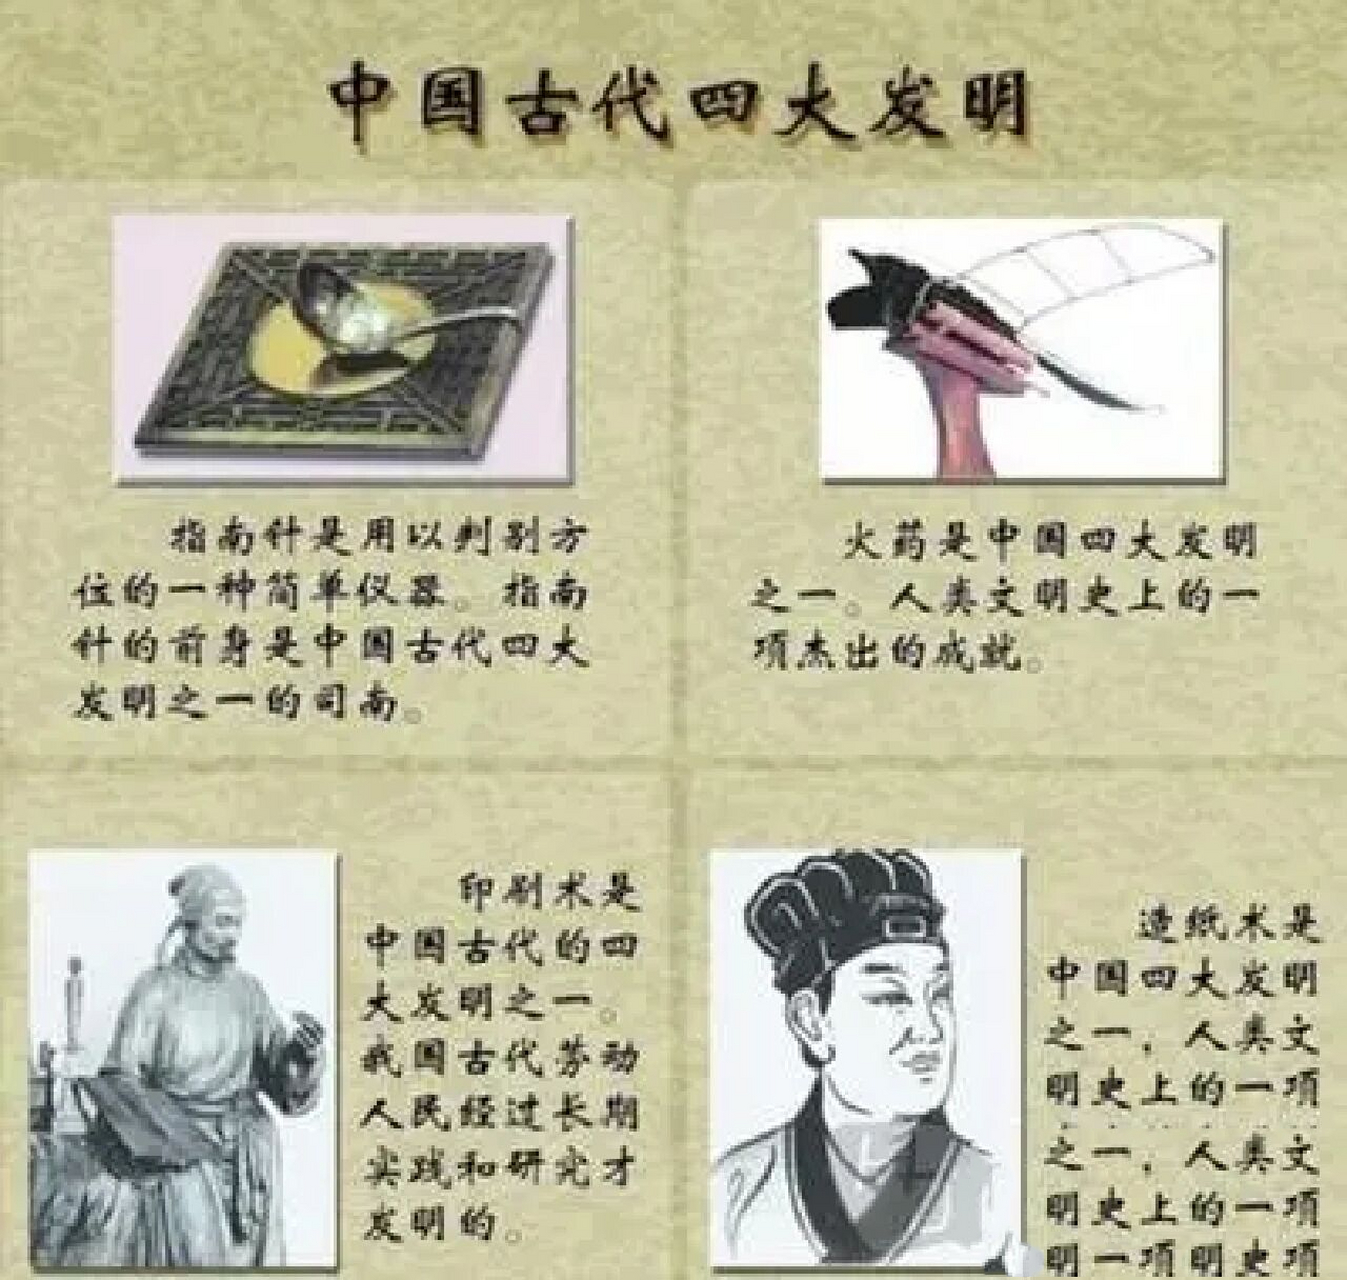 中国古代四大发明
指南针是用以判别方
位的一种简单仪器。指南
针的前身是中国古代四大
发明之一的司南。
火药是中国四大发明
之一。人类文明史上的一
项杰出的成就。
印刷术是
中国古代的四
大发明之一。
我国古代劳动
人民经过长期
实践和研究才
发明的。
造纸术是
中国四大发明
之一，人类文
明史上的一项
之一，人类文
明史上的一项
明一项明史项